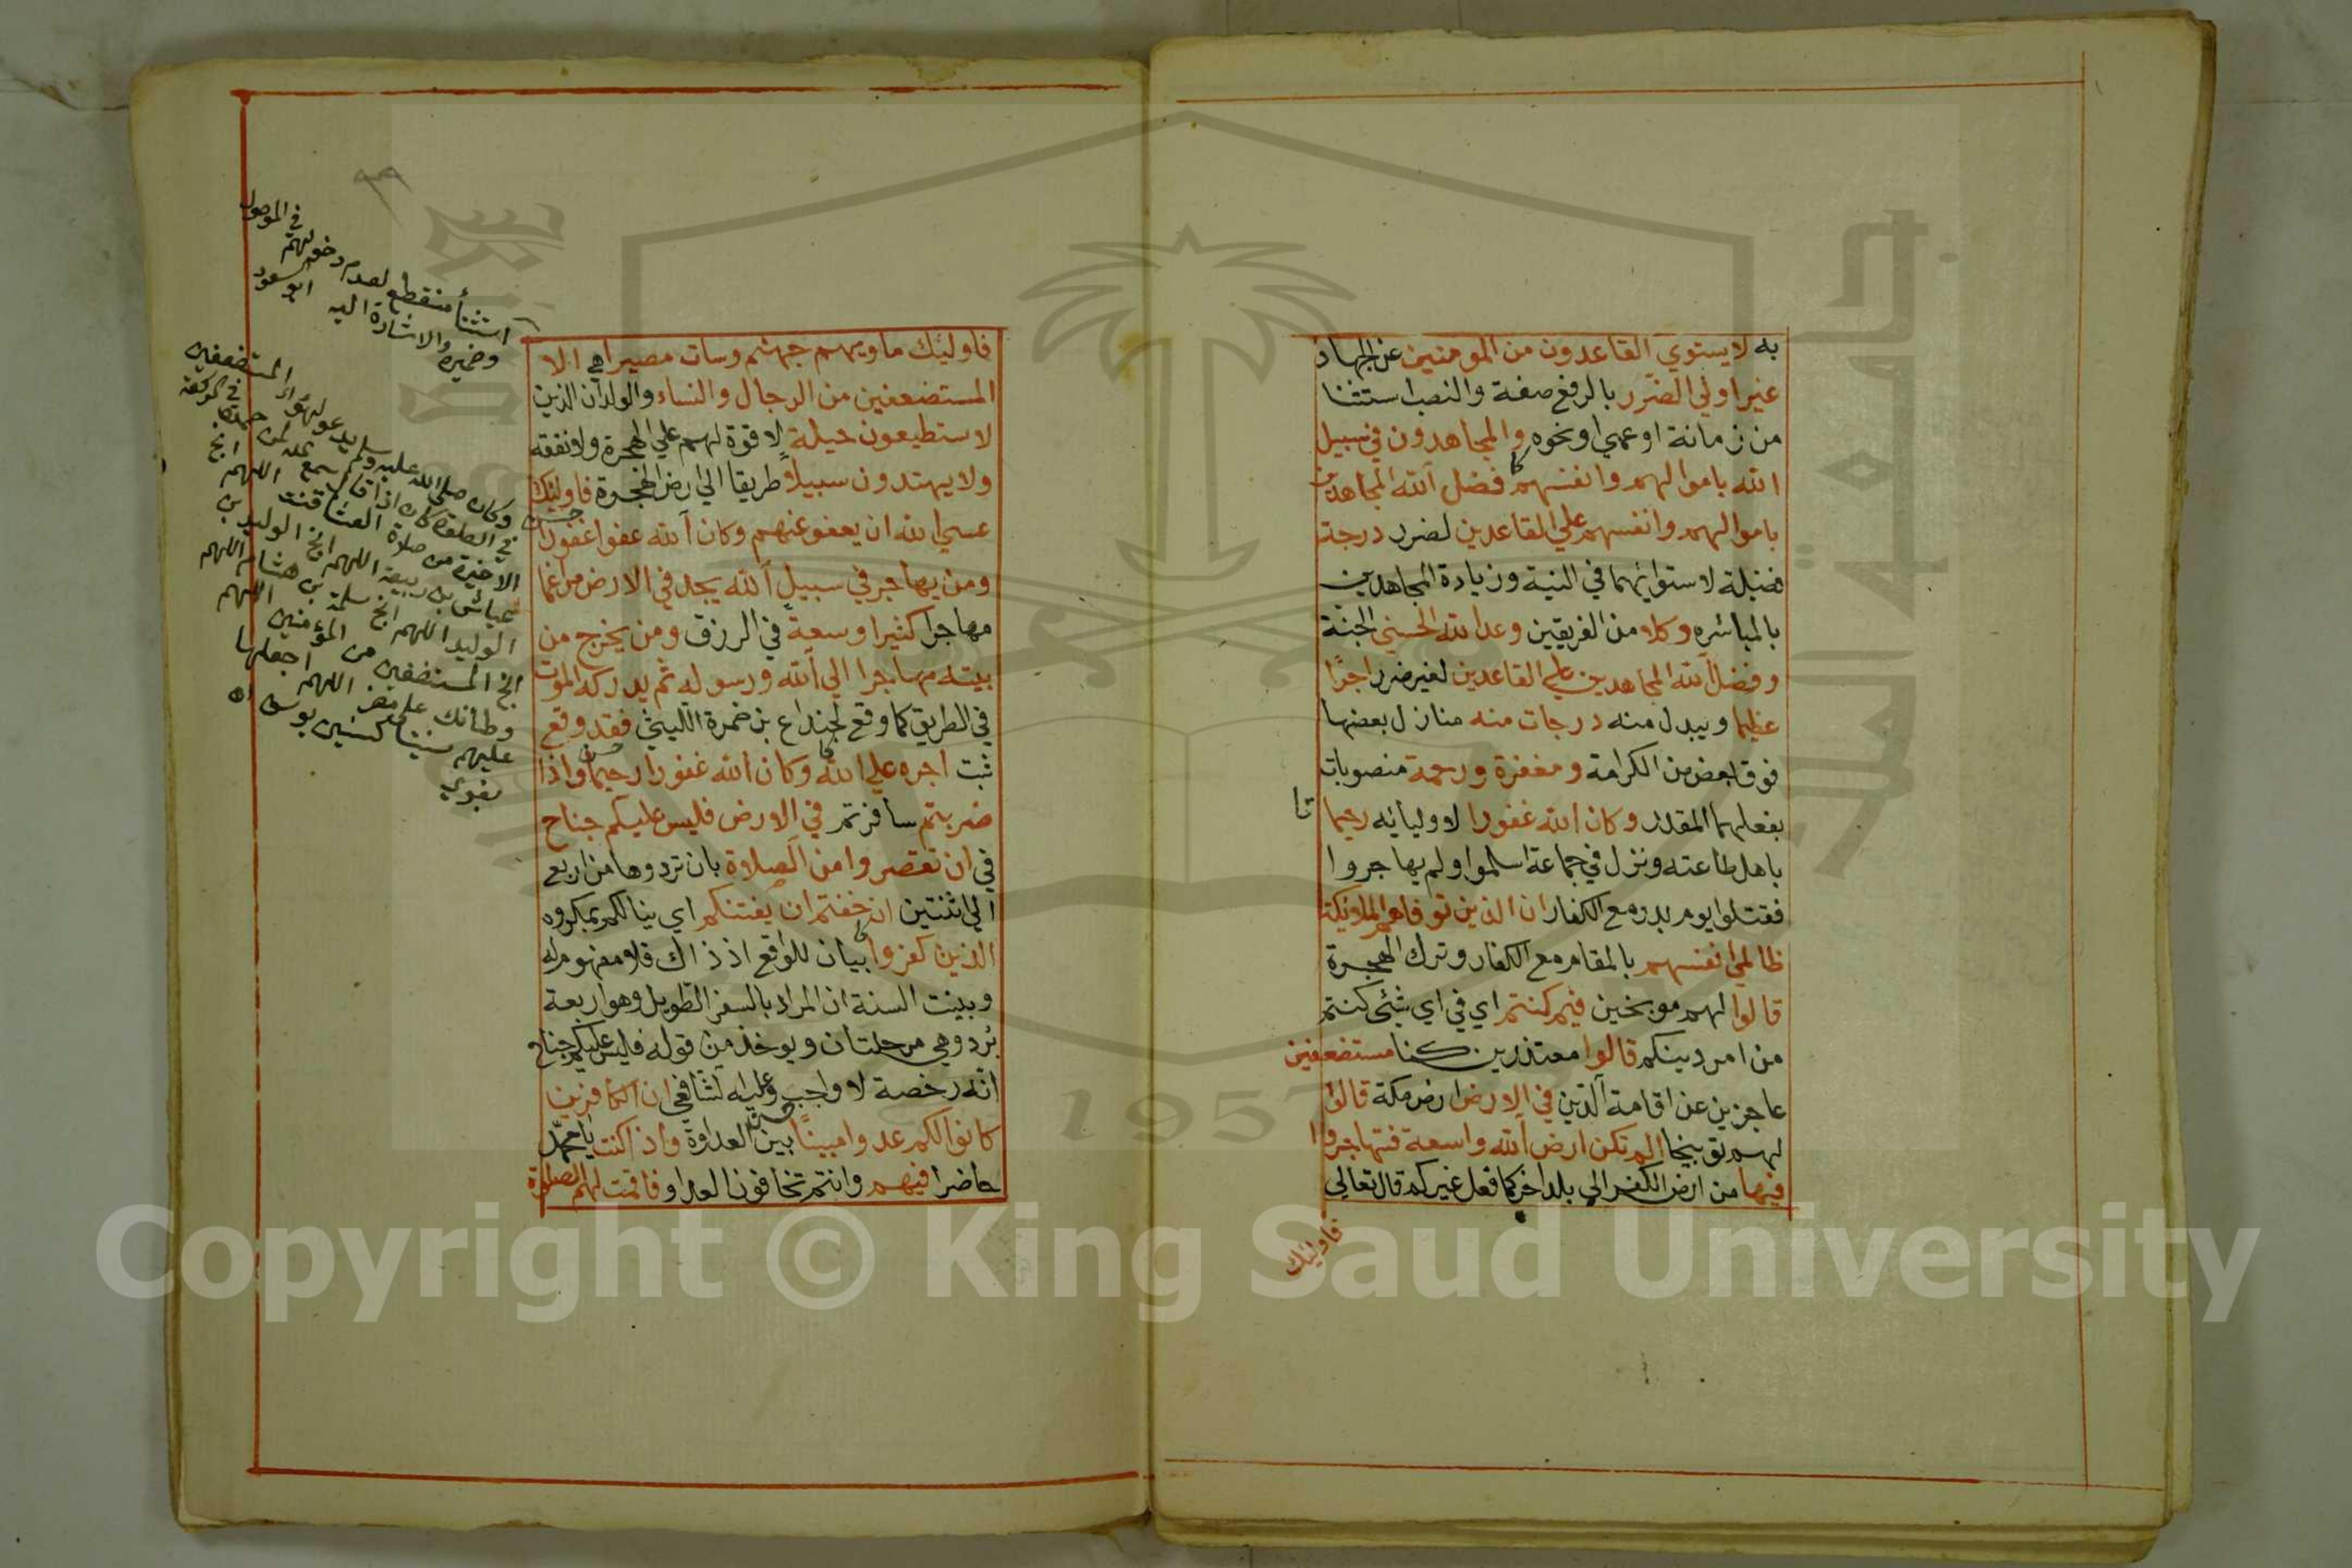 به لا يستوي القاعدون من المومنين عن الجهاد
غير اولي الضرر بالرفع صفة والنصب استثنا
من زمانة او عمي او نحوه والمجاهدون في سبيل
الله باموالهم وانفسهم فضل الله المجاهدين
باموالهم وانفسهم علي القاعدين لضرر درجة
فضيلة لاستوائهما في النية وزيادة المجاهدين
بالمباشره وكلا من الفريقين وعد الله الحسني الجنة
وفضل الله المجاهدين علي القاعدين لغير ضرر اجرًا
عظيما ويبدل منه درجات منه منازل بعضها
فوق بعض من الكرامة ومغفرة ورحمة منصوبات
بفعلهما المقدر وكان الله غفورا لاوليائه رحيما
باهل طاعته ونزل في جماعة اسلموا ولم يهاجروا
فقتلوا يوم بدر مع الكفار ان الذين توفاهم الملائكة
ظالمي انفسهم بالمقام مع الكفار وترك الهجرة
قالوا لهم موبخين فيم كنتم اي في اي شئ كنتم
من امر دينكم قالوا معتذرين كنا مستضعفين
عاجزين عن اقامة الدين في الارض ارض مكة قالوا
لهم توبيخا الم تكن ارض الله واسعة فتهاجروا
فيها من ارض الكفر الي بلد اخر كما فعل غيركم قال تعالي
فاوليك
فاوليك ماويهم جهنم وسات مصيرا هي الا
المستضعفين من الرجال والنساء والولدان الذين
لا ستطيعون حيلة لا قوة لهم علي الهجرة ولا نفقة
ولا يهتدون سبيلا طريقا الي ارض الهجرة فاوليك
عسي الله ان يعفو عنهم وكان الله عفوا غفورا
ومن يهاجر في سبيل الله يجد في الارض مراغما
مهاجرا كثيرا وسعة في الرزق ومن يخرج من
بيته مهاجرا الي الله ورسوله ثم يدركه الموت
في الطريق كما وقع لجنداع بن ضمرة الليثي فقد وقع
ثبت اجره علي الله وكان الله غفورا رحيما واذا
ضربتم سافرتم في الارض فليس عليكم جناح
في ان تقصروا من الصلاة بان تردوها من اربع
الي ثنتين ان خفتم ان يفتنكم اي ينالكم بمكروه
الذين كفروا بيان للواقع اذ ذاك فلا مفهوم له
وبينت السنة ان المراد بالسفر الطويل وهو اربعة
برد وهي مرحلتان ويوخذ من قوله فليس عليكم جناح
انه رخصة لا واجب وعليه الشافعي ان الكافرين
كانوا لكم عدوا مبينًا بين العداوة واذا كنت يا محمد
حاضرا فيهم وانتم تخافون العدو فاقمت لهم الصلوة
استثنأ منقطع لعدم دخولهم في الموصول
وضميره والاشارة اليه ابو السعود
وكان صلي الله عليه وسلم يدعو لهؤلاء المستضعفين
في الصلوة كان اذا قال سمع الله لمن حمده في الركعة
الاخيرة من صلاة العشا قنت اللهم انج
عياش بن ربيعة اللهم انج الوليد بن
الوليد اللهم انج سلمة بن هشام اللهم
انج المستضعفين من المؤمنين اللهم
وطأتك علي مضر اللهم اجعلها
عليهم سنينا كسنين يوسف اه
بغوي
Copyright © King Saud University
1957